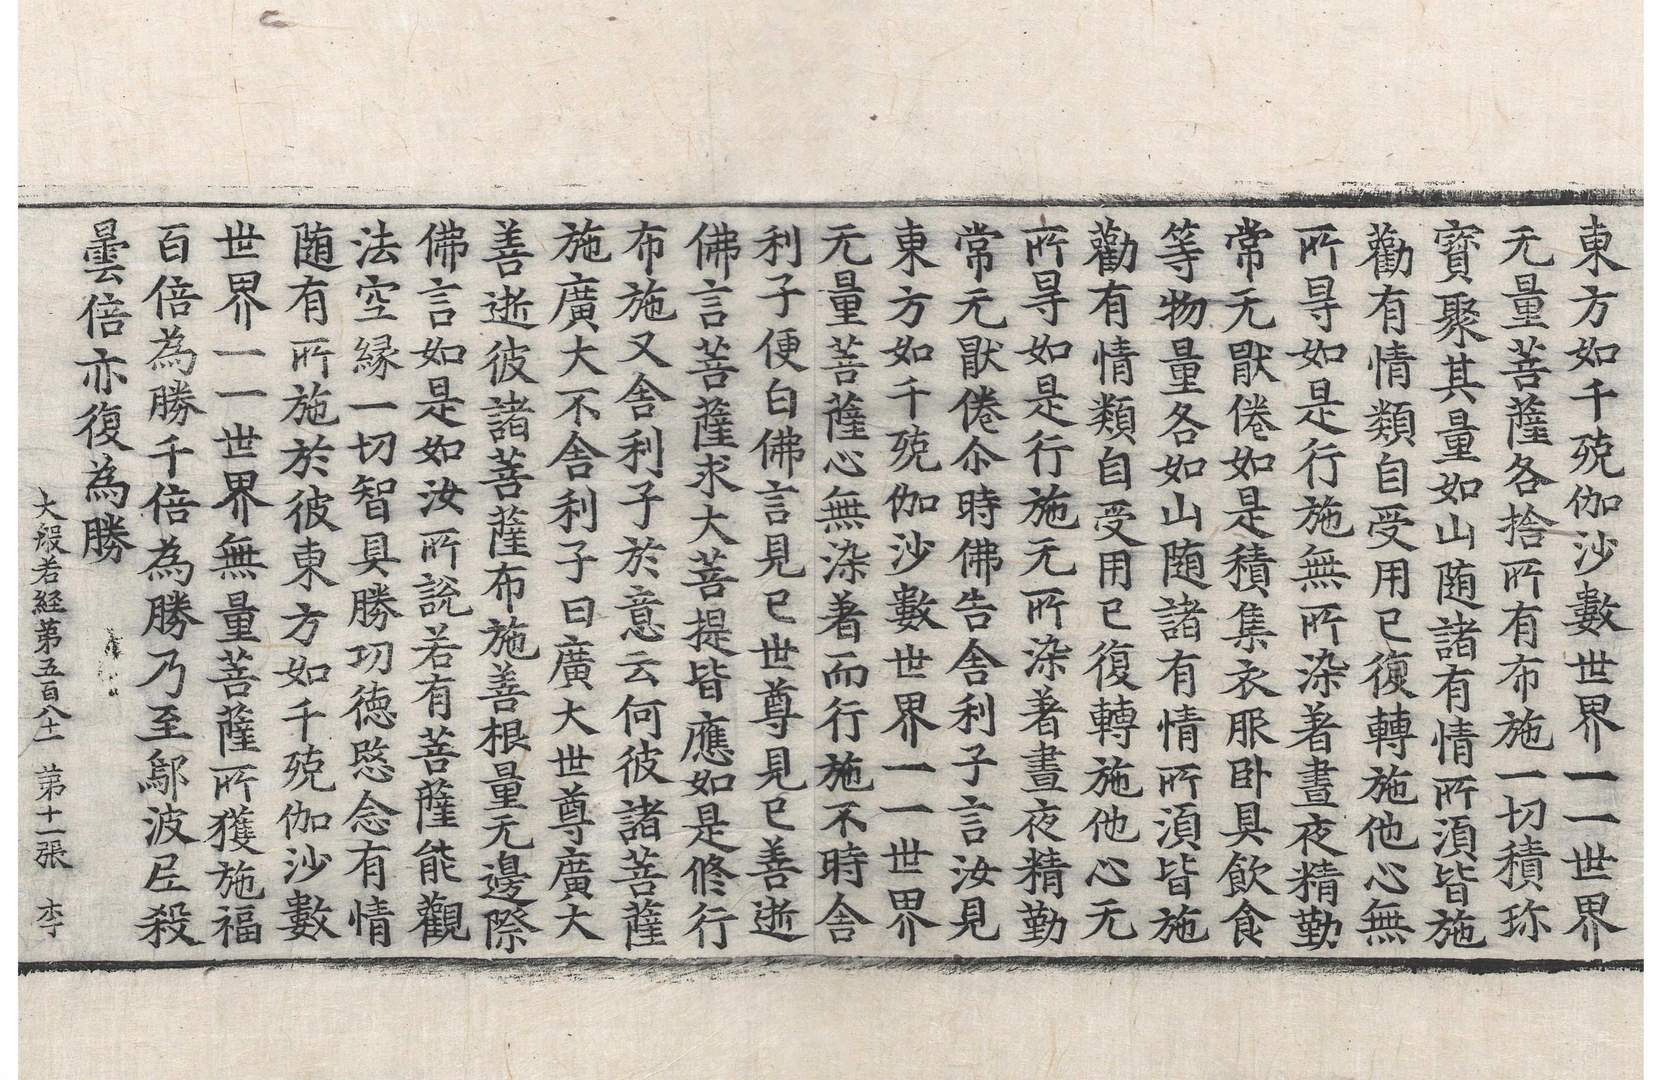 東方如千殑伽沙數世界一一世界
无量菩薩各捨所有布施一切積珎
寳聚其量如山随諸有情所湏皆施
勸有情類自受用已復轉施他心無
所㝵如是行施無所染著晝夜精勤
常无厭倦如是積集衣服卧具飲食
等物量各如山随諸有情所湏皆施
勸有情類自受用已復轉施他心无
所㝵如是行施无所染著晝夜精勤
常无厭倦尒時佛告舍利子言汝見
東方如千殑伽沙數世界一一世界
无量菩薩心無染著而行施不時舍
利子便白佛言見已世尊見已善逝
佛言菩薩求大菩提皆應如是修行
布施又舍利子於意云何彼諸菩薩
施廣大不舍利子曰廣大世尊廣大
善逝彼諸菩薩布施善根量无邊際
佛言如是如汝所說若有菩薩能觀
法空縁一切智具勝功徳愍念有情
随有所施於彼東方如千殑伽沙數
世界一一世界無量菩薩所獲施福
百倍為勝千倍為勝乃至鄔波尼殺
曇倍亦復為勝
大般若経第五百八十一 第十一張 李